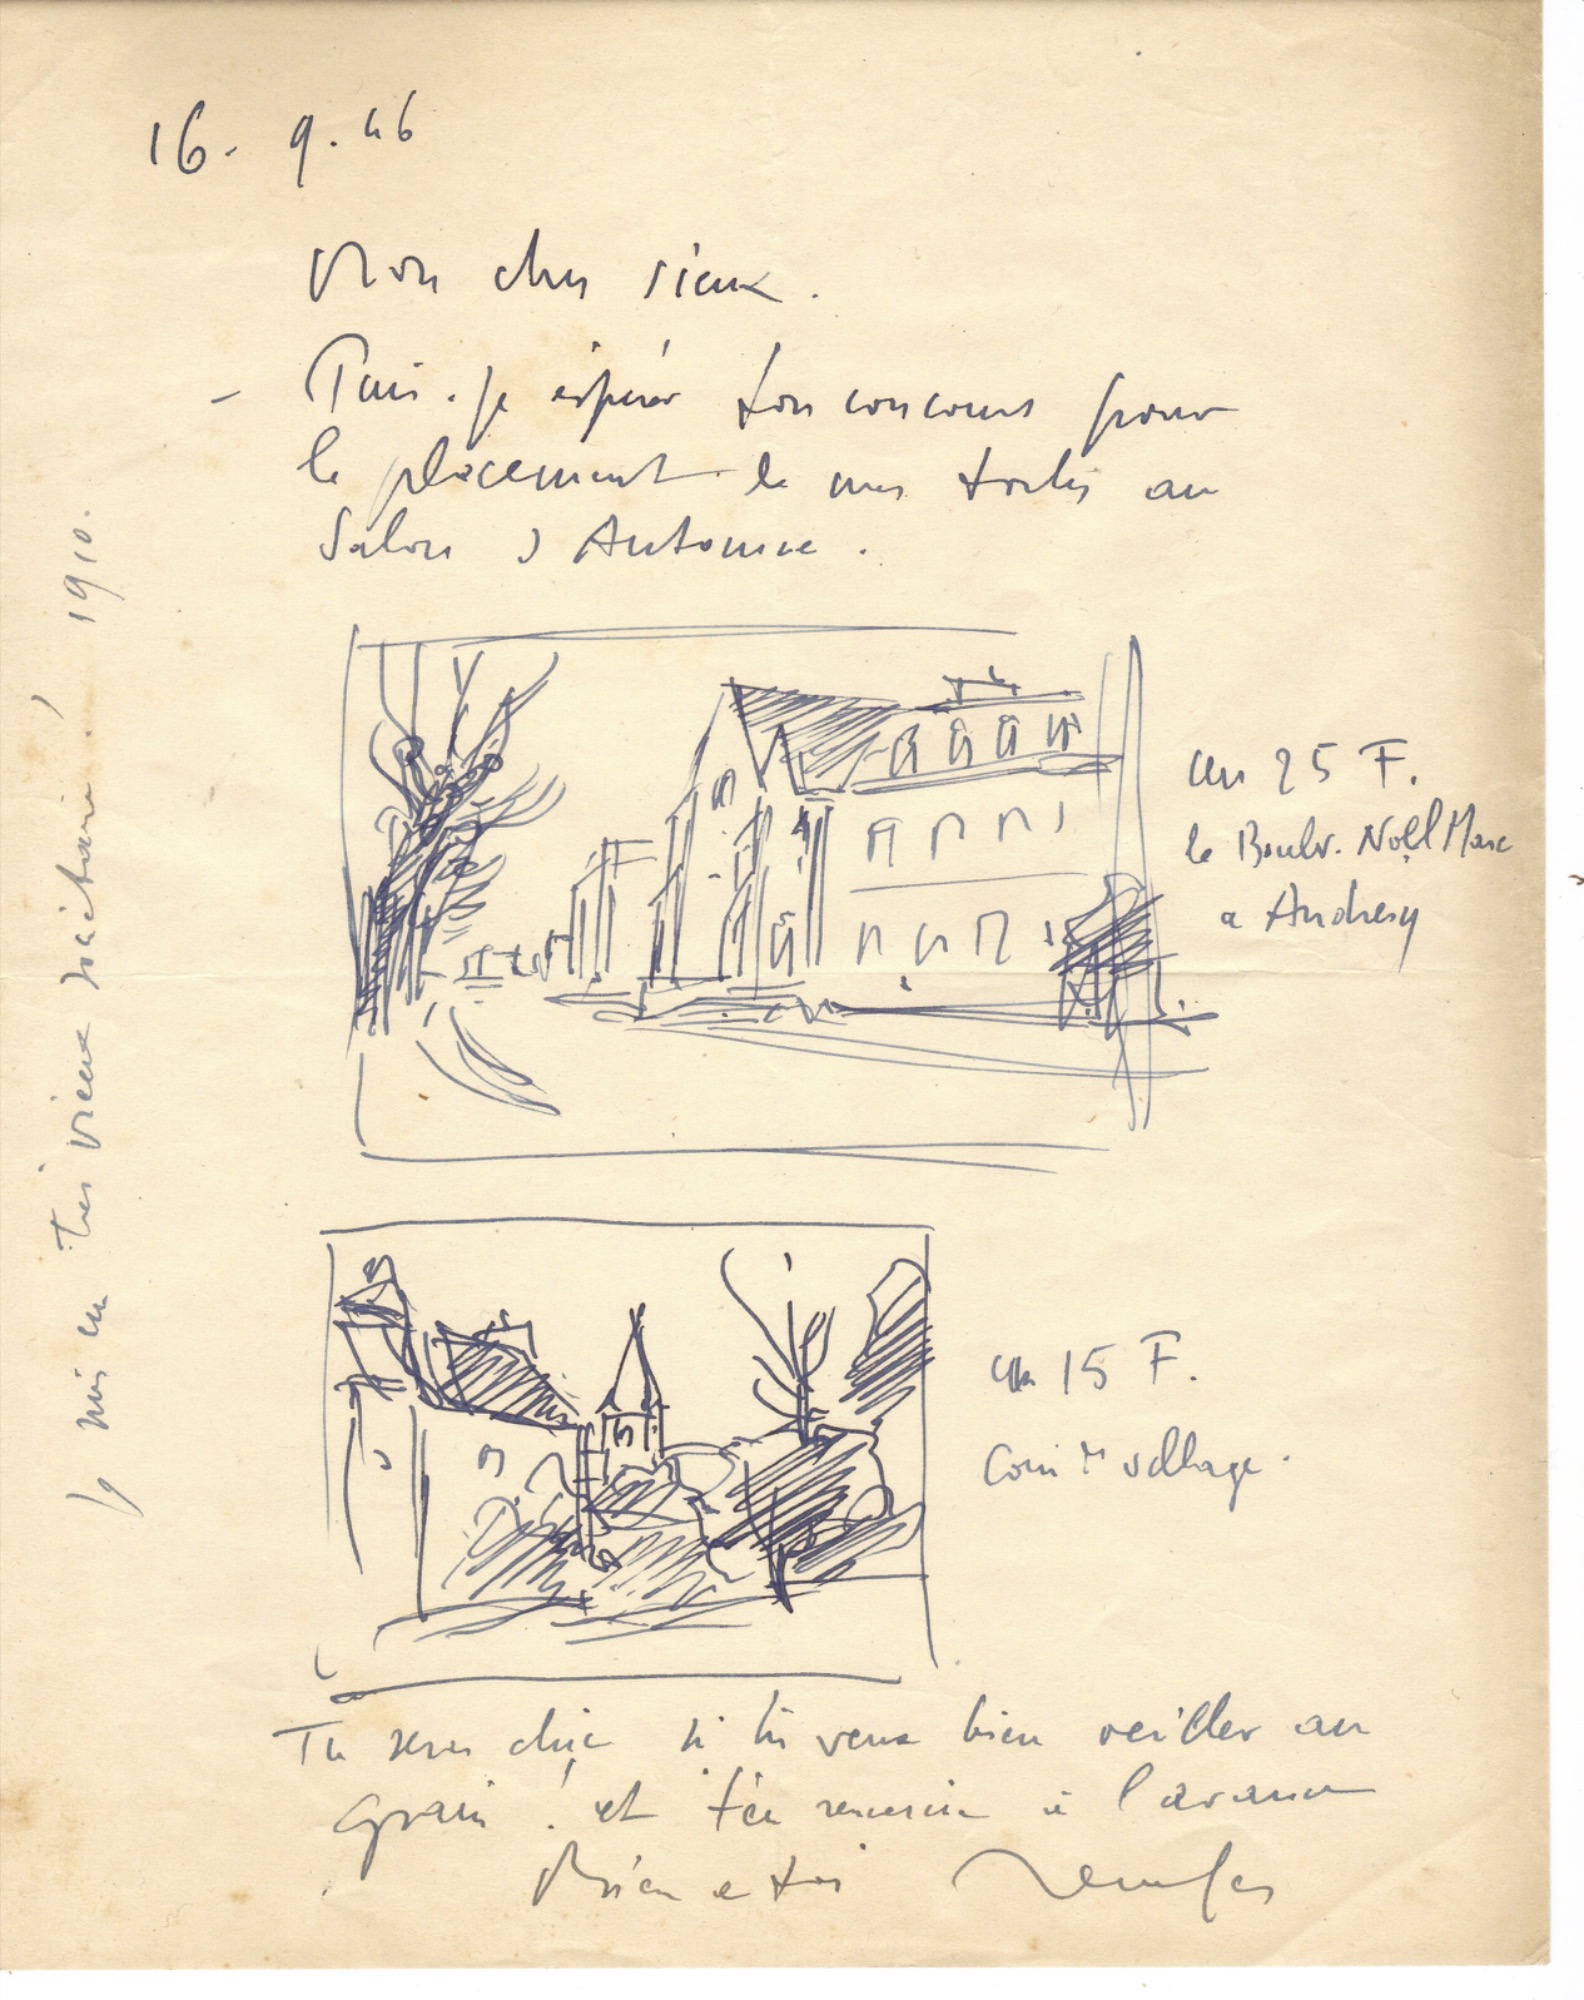 16. 9. 46
Mon cher vieux.
- Puis-je espérer ton concours pour
le placement de mes toiles au
Salon d'Automne.
un 25 F.
le Boulv. Noël Marc
a Andresy
un 15 F.
Coin de village.
Tu seras chic si tu veux bien veiller au
grain! et t'en remercie à l'avance
Bien a toi
Je suis un très vieux sociétaire! 1910.